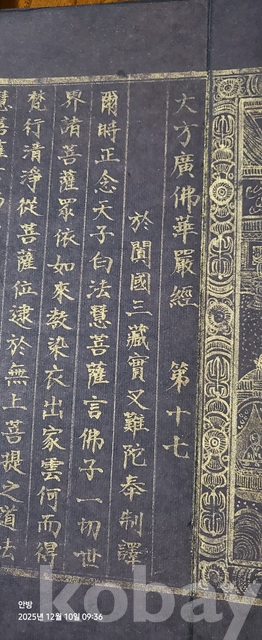 大方廣佛華嚴經 第十七
於闐國三藏實叉難陀奉 制譯
爾時正念天子白法慧菩薩言佛子一切世
界諸菩薩眾依如來教染衣出家雲何而得
梵行清淨從菩薩位逮於無上菩提之道法
慧菩薩
안방
2025년 12월 10일 09:36
kobay